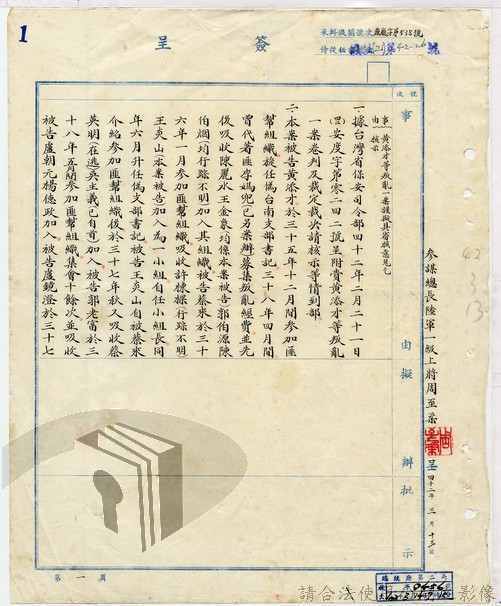 1
簽呈
來辦機關號次
侍從秘書
號次
事由擬辦批示
事由:黃添才等叛亂一案謹擬具審核意見乞核示
一、據台灣省保安司令部四十二年二月二十一日
(四二)安度字第零二四二號呈附賷黃添才等叛亂
一案卷判及裁定裁決請核示等情到部
二、本案被告黃添才於三十五年十二月間參加匪
幫組織旋任偽台南支部書記三十八年四月間
曾代著匪李媽兜(已另案辦)募集叛亂經費並先
後吸收陳麗水王金泉均係本案被告郭伯源陳
伯烟(均行踪不明)加入其組織被告蔡米於三十
六年一月參加匪幫組織吸收許棟樑(行踪不明)
王炎山(本案被告)加入為一小組自任小組長同
年六月升任偽支部書記被告王炎山自被蔡米
介紹參加匪幫組織後於三十七年秋又吸收蔡
英明(在逃)吳主義(已自首)加入被告郭老富於三
十八年五月間參加匪幫組織集會十餘次並吸收
被告盧朝元楊德政加入被告盧鏡澄於三十七
參謀總長陸軍一級上將周至柔
呈四十二年三月十三日
第一頁
總統府第二局
0456
請合法使用
影像